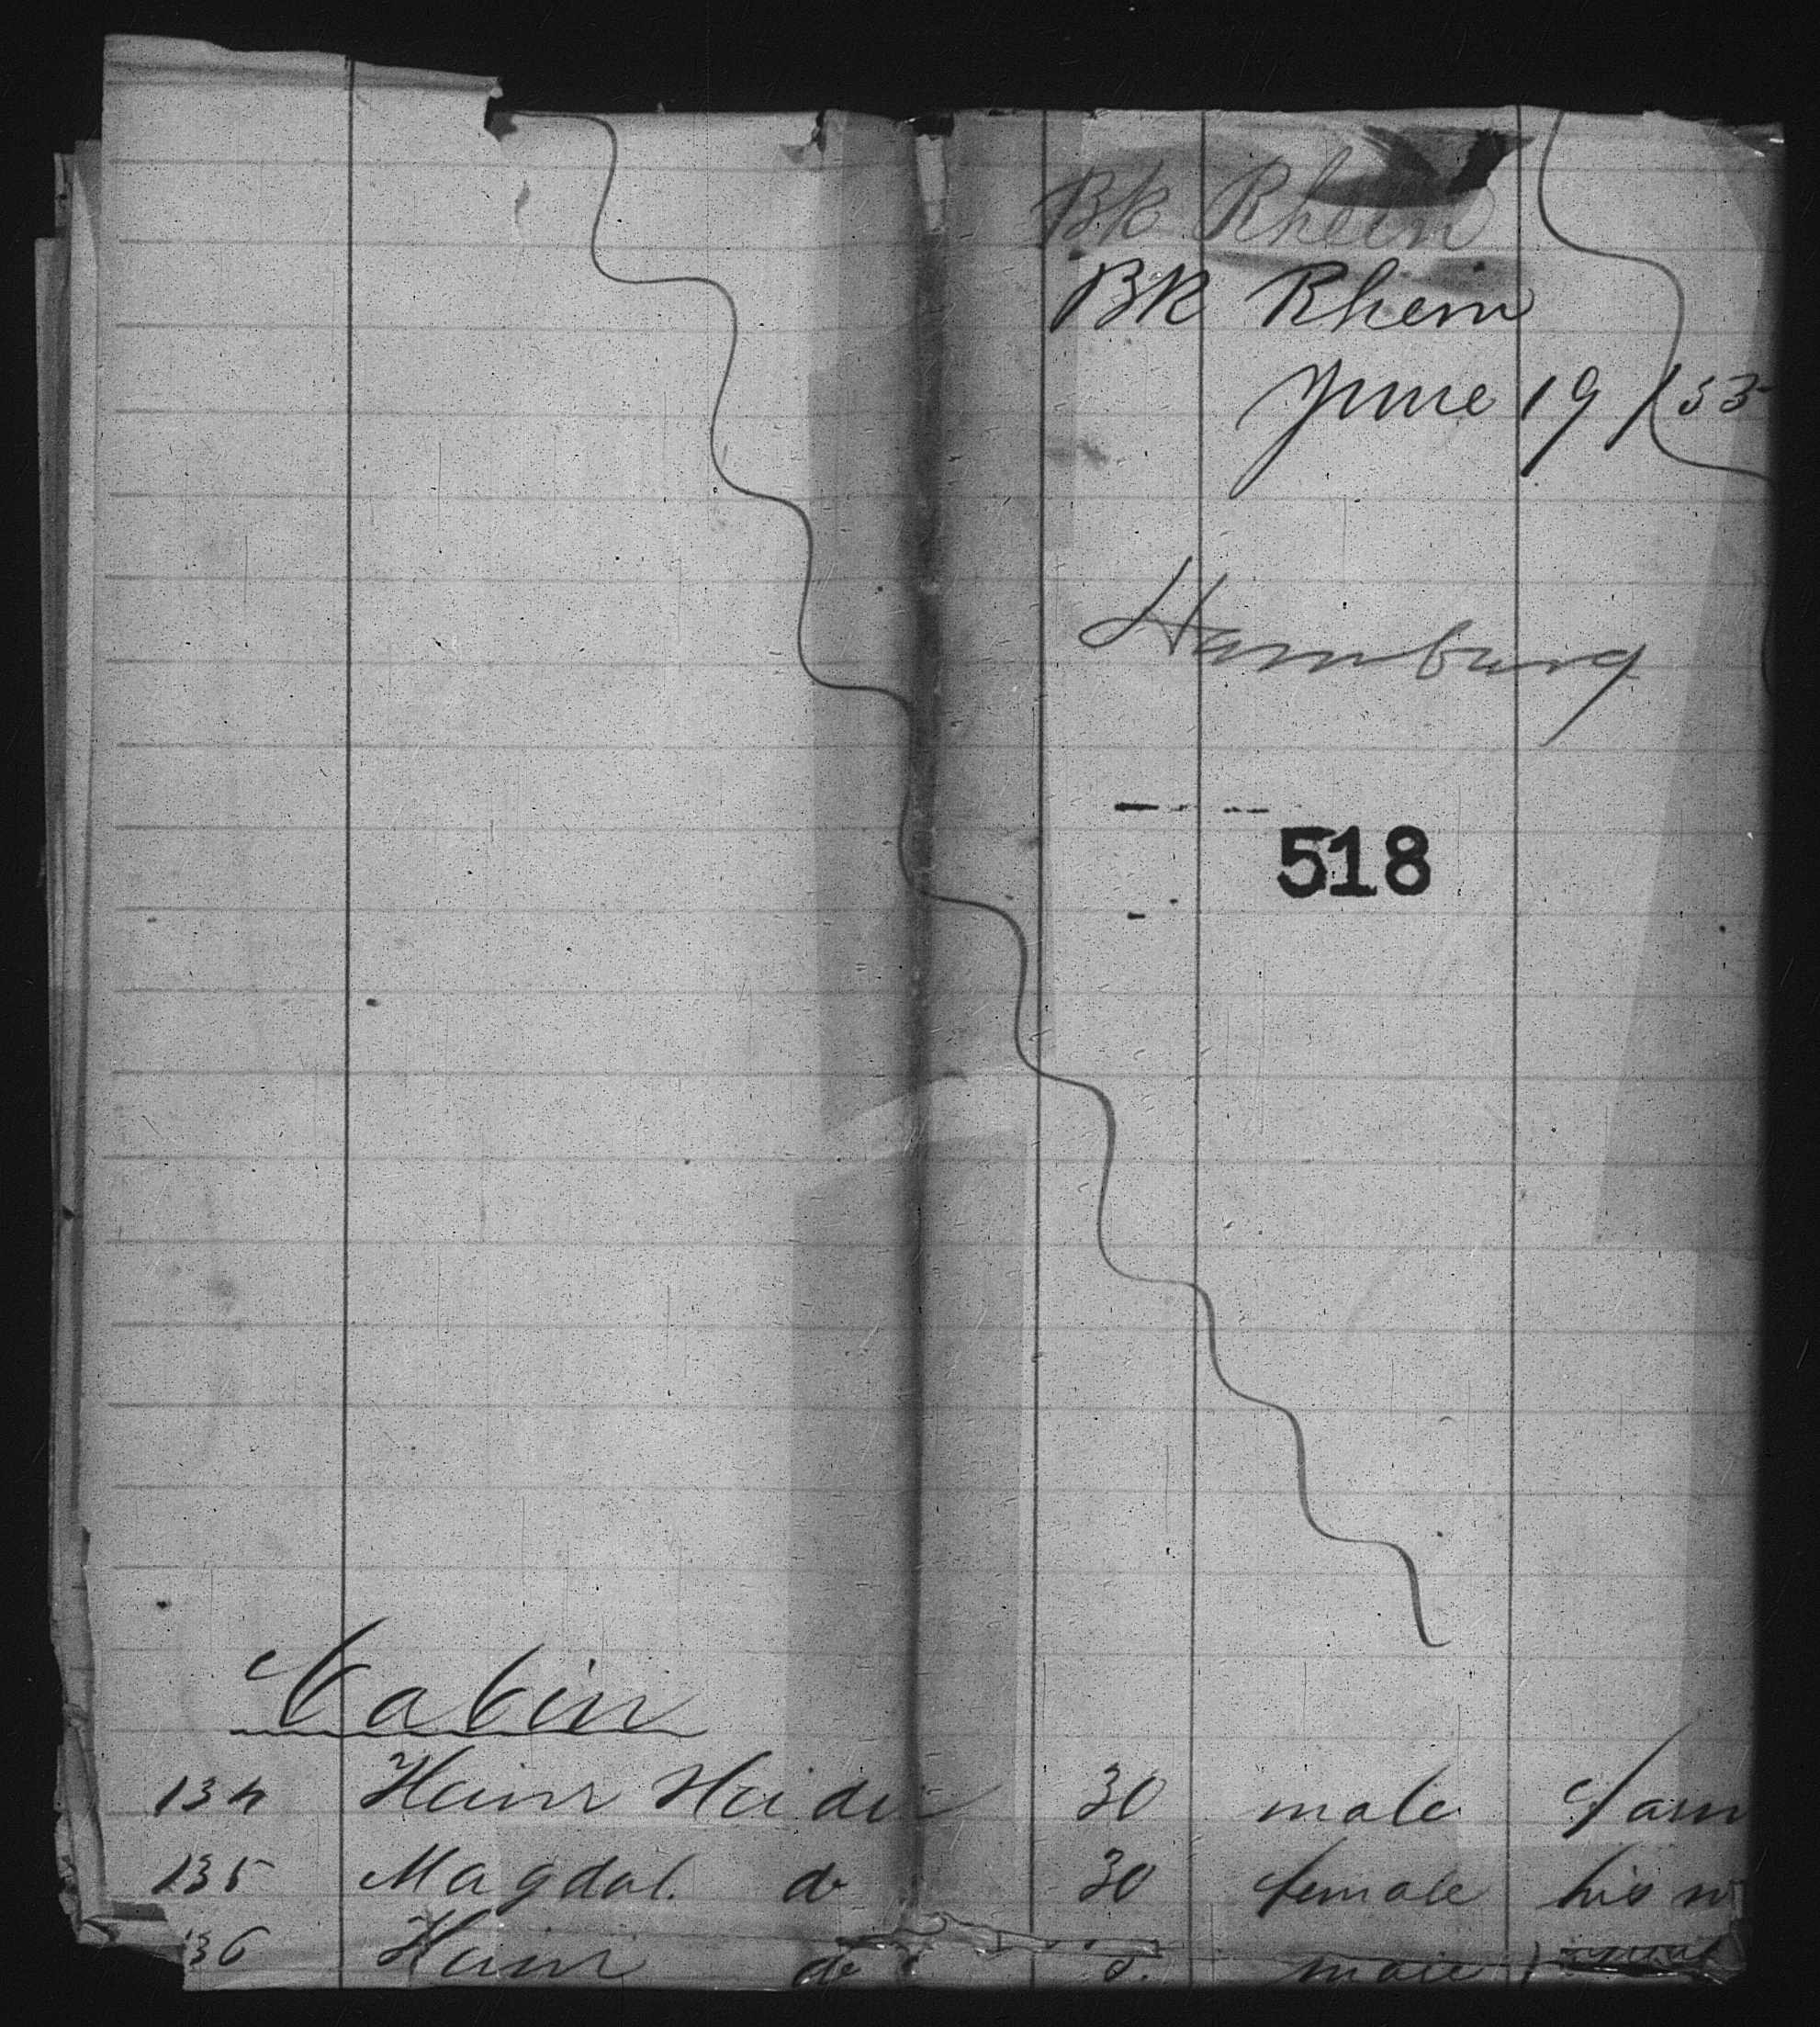 Bk Rhein
Bk Rhein
June 19 / 55
Hamburg
518
Cabin
134 Heinr Heider 30 male Farm
135 Magdal. do 30 female his w
136 Heinr do male